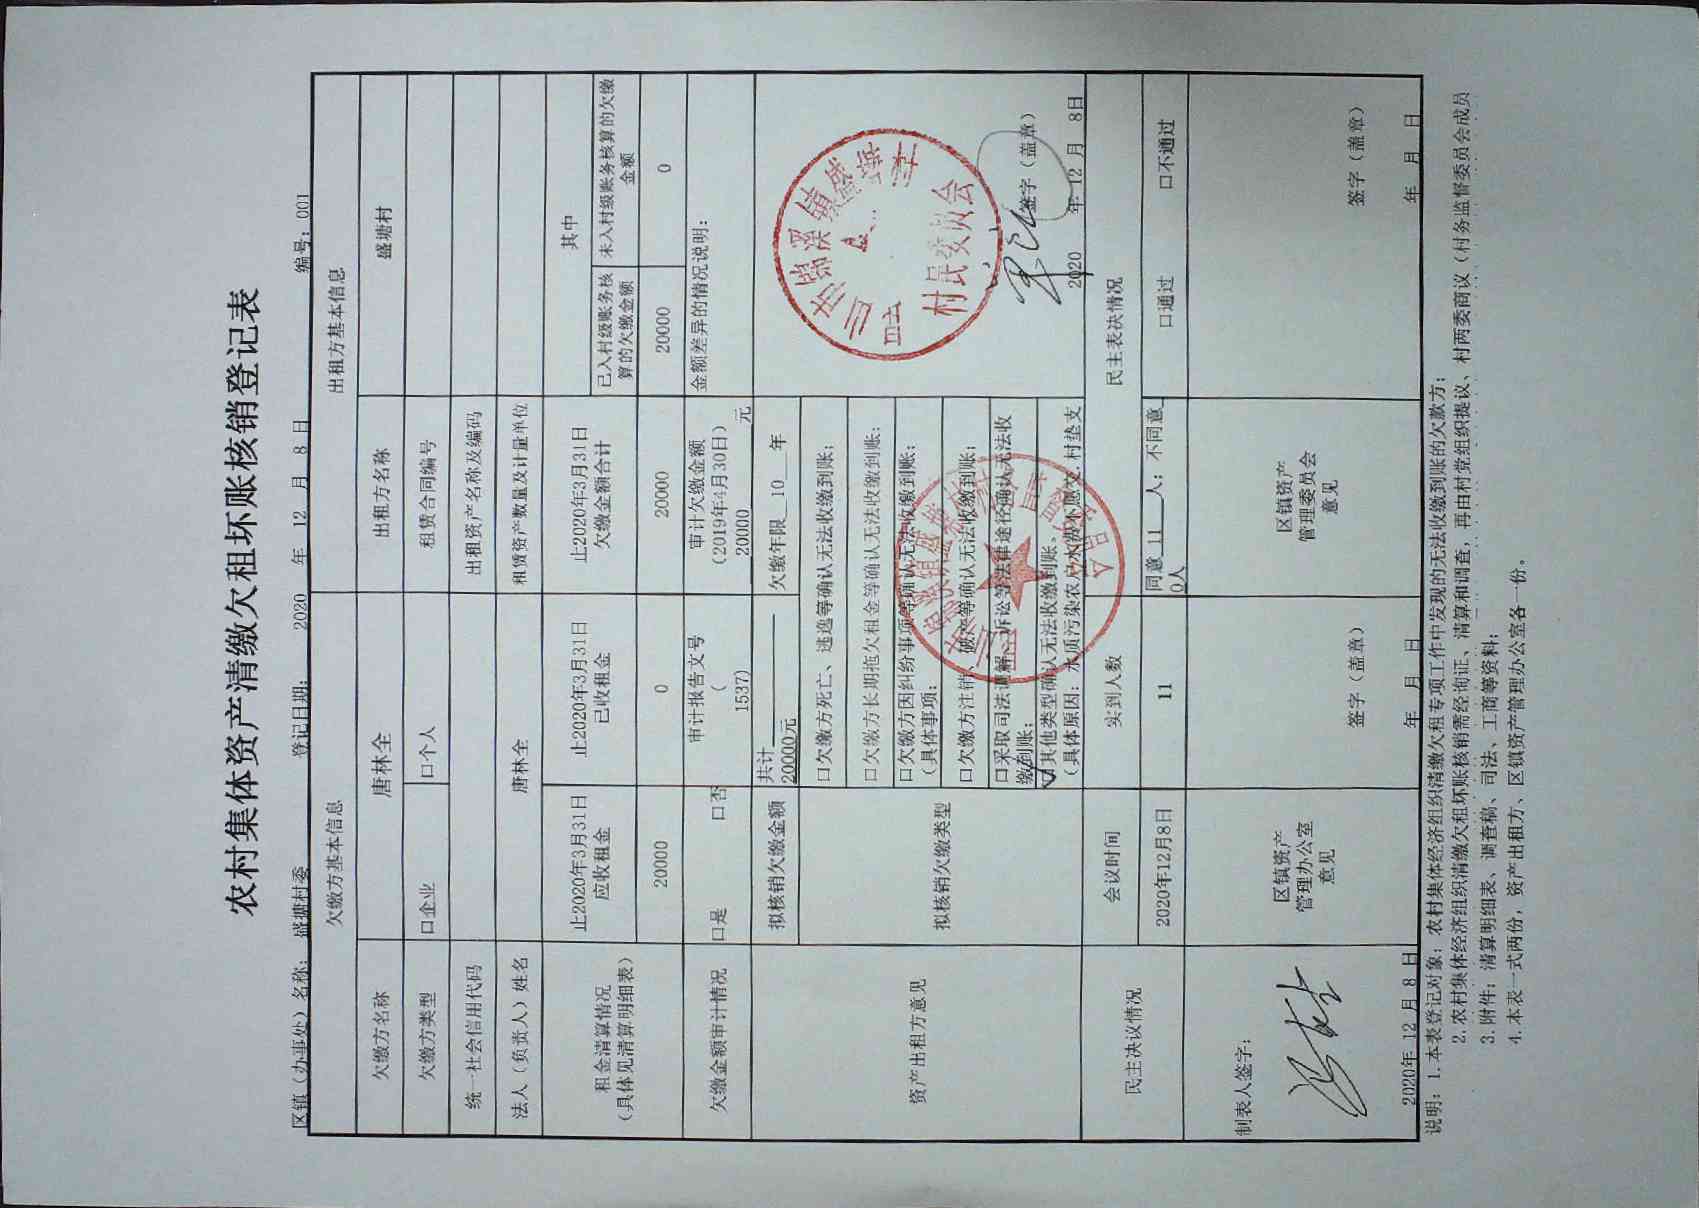 农村集体资产清缴欠租坏账核销登记表
区镇（办事处）名称： 盛塘村委 登记日期： 2020 年 12 月 8 日 编号：001
欠缴方基本信息 出租方基本信息
欠缴方名称 唐林全 出租方名称 盛塘村
欠缴方类型 口企业 口个人 租赁合同编号
统一社会信用代码 出租资产名称及编码
法人（负责人）姓名 唐林全 租赁资产数量及计量单位
租金清算情况
（具体见清算明细表）
止2020年3月31日
应收租金
止2020年3月31日
已收租金
止2020年3月31日
欠缴金额合计
其中
已入村级账务核
算的欠缴金额
未入村级账务核算的欠缴
金额
20000 0 20000 20000 0
欠缴金额审计情况 口是 口否
审计报告文号
（
1537)
审计欠缴金额
（2019年4月30日）
20000 元
金额差异的情况说明：
资产出租方意见
拟核销欠缴金额
共计
20000元
欠缴年限 10 年
拟核销欠缴类型
口欠缴方死亡、逃逸等确认无法收缴到账；
口欠缴方长期拖欠租金等确认无法收缴到账；
口欠缴方因纠纷事项等确认无法收缴到账；
（具体事项：
口欠缴方注销、破产等确认无法收缴到账；
口采取司法调解、诉讼等法律途径确认无法收
缴到账；
☑其他类型确认无法收缴到账。
（具体原因：水质污染农户水费不愿交.村垫支
村民委员会
签字（盖章）
2020 年 12 月 8日
民主决议情况 会议时间 实到人数 民主表决情况
2020年12月8日 11 同意 11 人；不同意
0人
口通过 口不通过
制表人签字：
2020年 12 月 8 日
区镇资产
管理办公室
意见
签字（盖章）
年 月 日
区镇资产
管理委员会
意见
签字（盖章）
年 月 日
说明：1.本表登记对象：农村集体经济组织清缴欠租专项工作中发现的无法收缴到账的欠款方；
2.农村集体经济组织清缴欠租坏账核销需经询证、清算和调查，再由村党组织提议、村两委商议（村务监督委员会成员
3.附件：清算明细表、调查稿、司法、工商等资料；
4.本表一式两份，资产出租方、区镇资产管理办公室各一份。